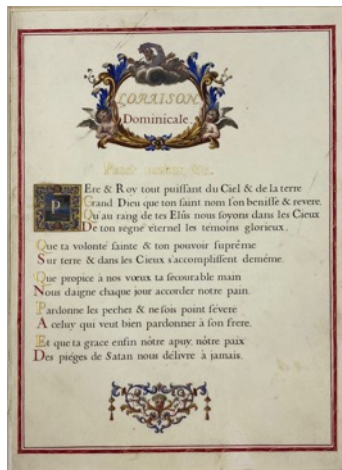 L'ORAISON
Dominicale.
Pater noster, &c.
PEre & Roy tout puissant du Ciel & de la terre
Grand Dieu que ton saint nom son benisse & revere,
Qu'au rang de tes Elûs nous soyons dans les Cieux
De ton regne éternel les témoins glorieux.
Que ta volonté sainte & ton pouvoir suprême
Sur terre & dans les Cieux s'accomplissent deméme.
Que propice à nos vœux ta secourable main
Nous daigne chaque jour accorder notre pain.
Pardonne les pecher & ne sois point sévere
A celuy qui veut bien pardonner à son frere.
Et que ta grace enfin nôtre apuy, nôtre paix
Des piéges de Satan nous délivre à jamais.